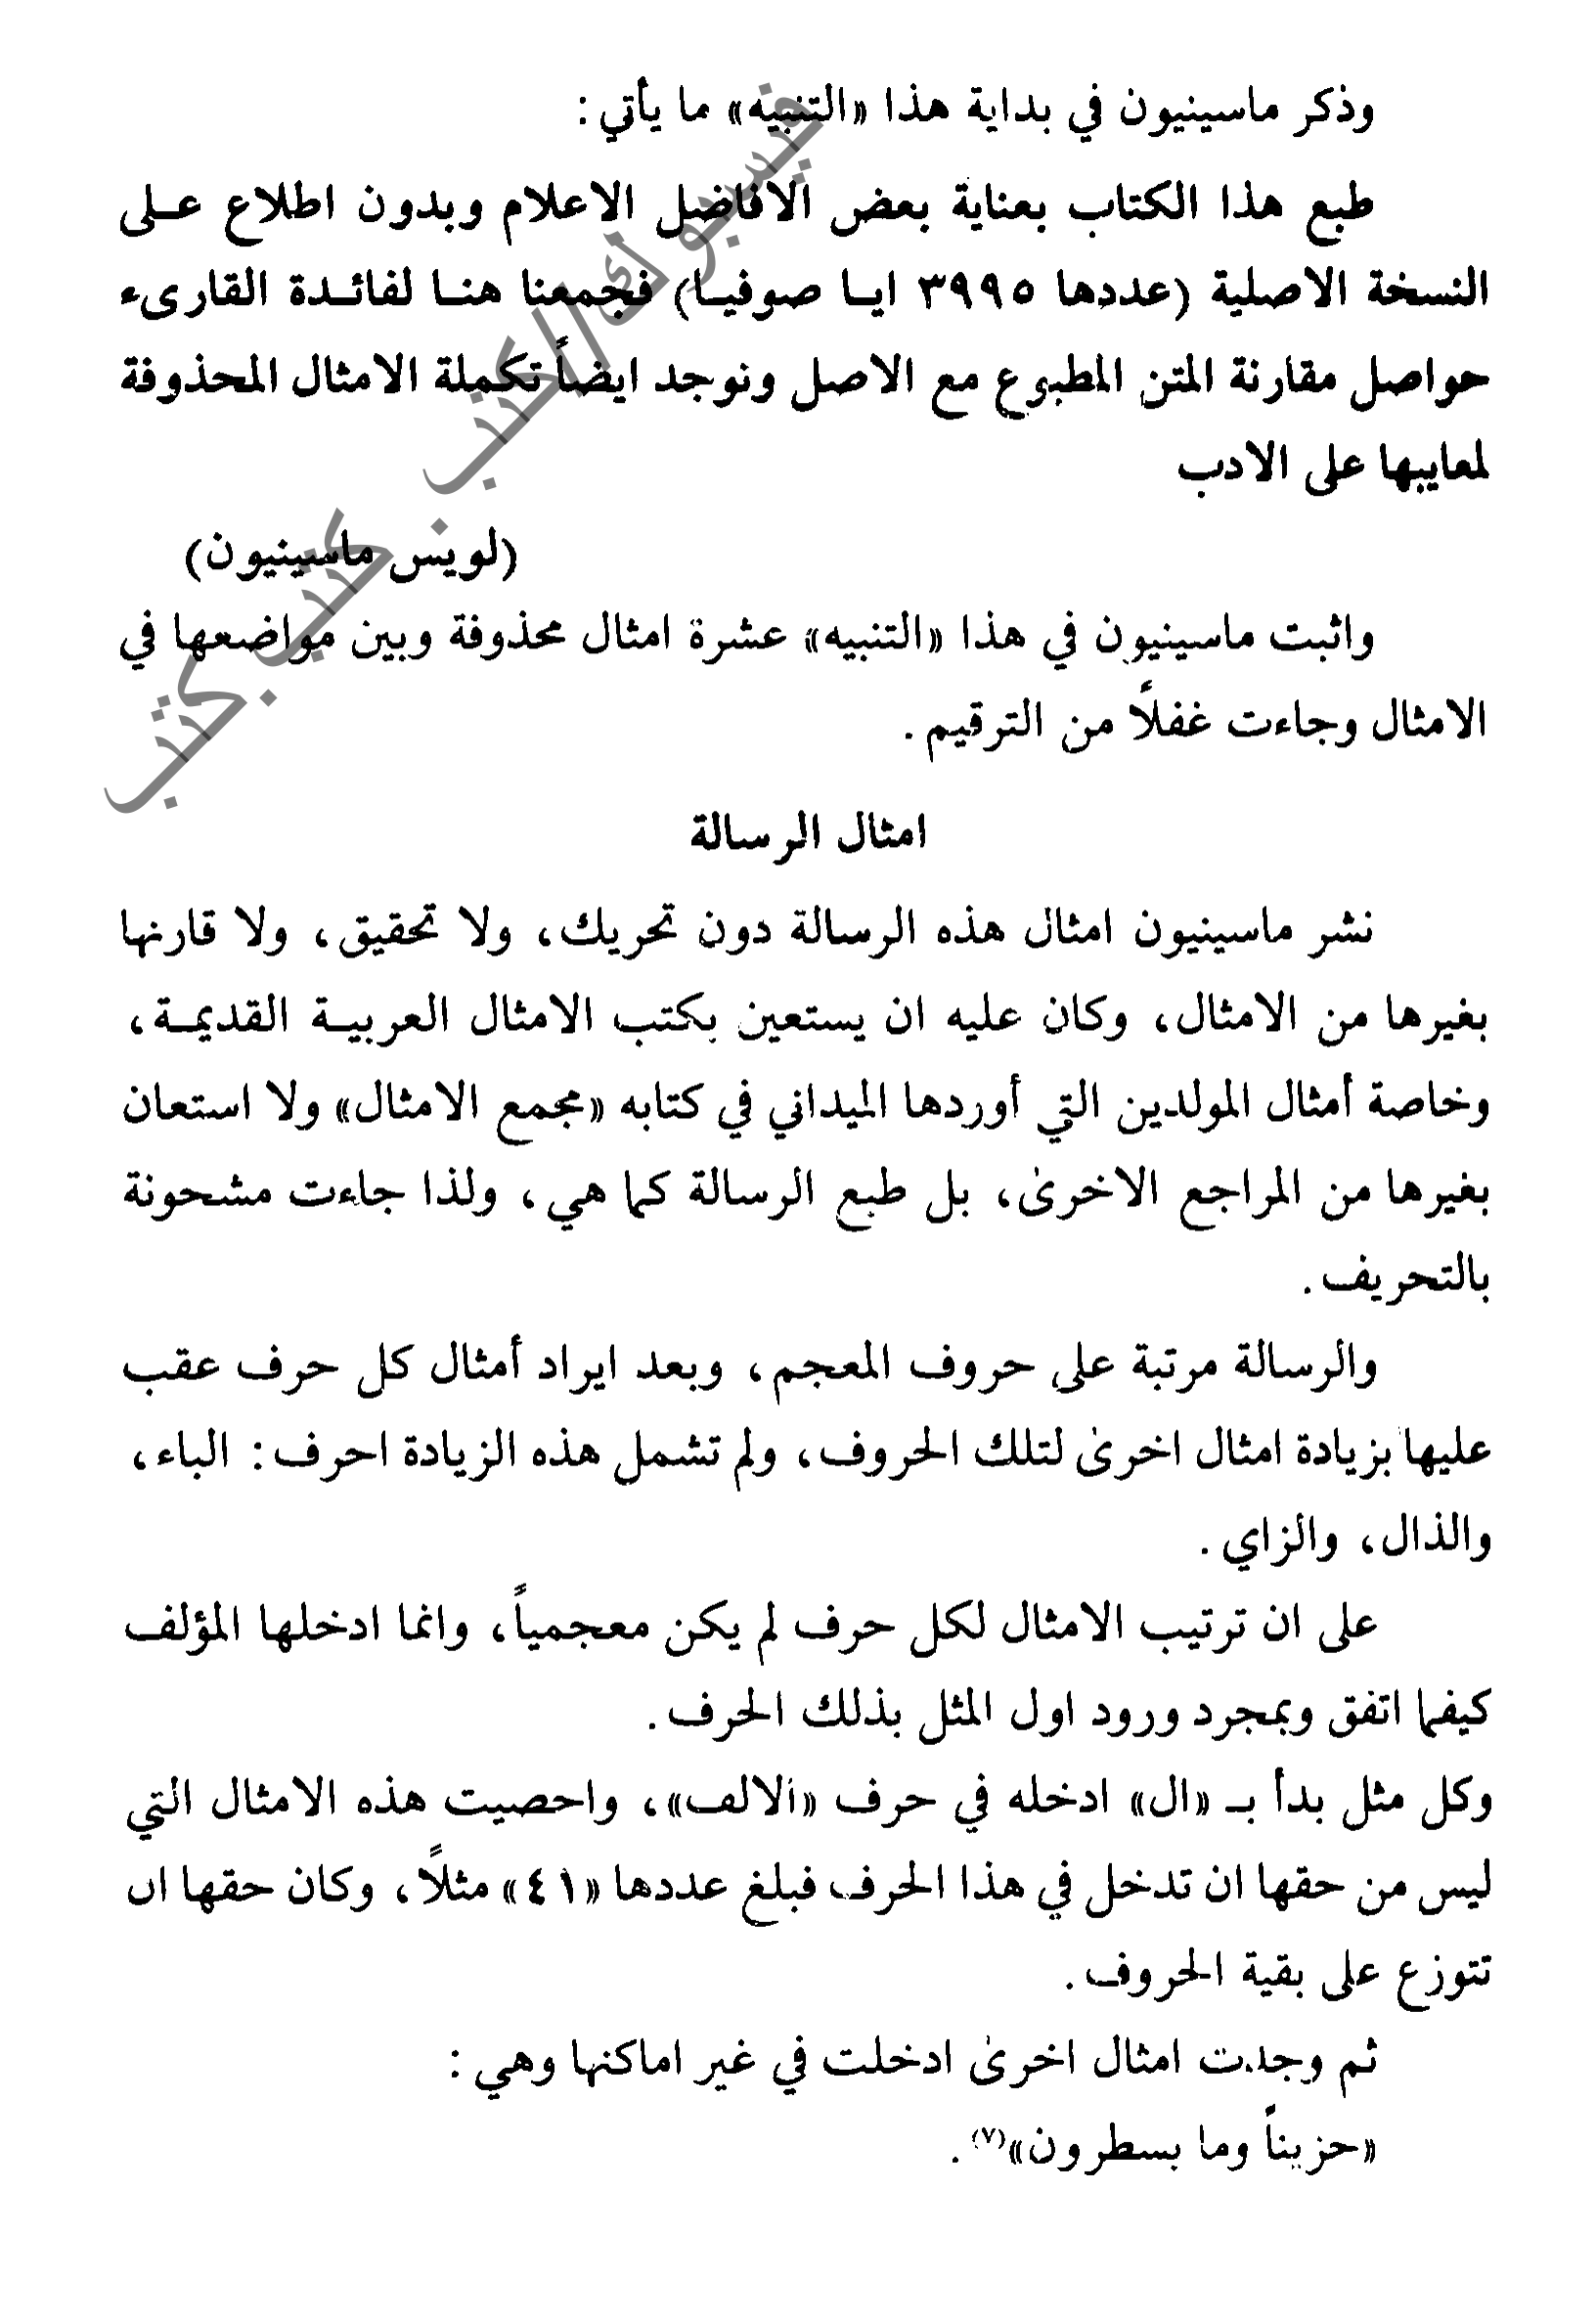 وذكر ماسينيون في بداية هذا «التنبيه» ما يأتي:
طبع هذا الكتاب بعناية بعض الافاضل الاعلام وبدون اطلاع على
النسخة الاصلية (عددها ٣٩٩٥ ايا صوفيا) فجمعنا هنا لفائدة القارىء
حواصل مقارنة المتن المطبوع مع الاصل ونوجد ايضاً تكملة الامثال المحذوفة
لمعايبها على الادب
(لويس ماسينيون)
واثبت ماسينيون في هذا «التنبيه» عشرة امثال محذوفة وبين مواضعها في
الامثال وجاءت غفلاً من الترقيم.
امثال الرسالة
نشر ماسينيون امثال هذه الرسالة دون تحريك، ولا تحقيق، ولا قارنها
بغيرها من الامثال، وكان عليه ان يستعين بكتب الامثال العربية القديمة،
وخاصة أمثال المولدين التي أوردها الميداني في كتابه «مجمع الامثال» ولا استعان
بغيرها من المراجع الاخرىٰ، بل طبع الرسالة كما هي، ولذا جاءت مشحونة
بالتحريف.
والرسالة مرتبة على حروف المعجم، وبعد ايراد أمثال كل حرف عقب
عليها بزيادة امثال اخرىٰ لتلك الحروف، ولم تشمل هذه الزيادة احرف: الباء،
والذال، والزاي.
على ان ترتيب الامثال لكل حرف لم يكن معجمياً، وانما ادخلها المؤلف
كيفما اتفق وبمجرد ورود اول المثل بذلك الحرف.
وكل مثل بدأ بـ «ال» ادخله في حرف «الالف»، واحصيت هذه الامثال التي
ليس من حقها ان تدخل في هذا الحرف فبلغ عددها «٤١» مثلاً، وكان حقها ان
تتوزع على بقية الحروف.
ثم وجدت امثال اخرىٰ ادخلت في غير اماكنها وهي:
«حزيناً وما بسطرون»(٧).
فيسبوك/كتب.كتب.كتب